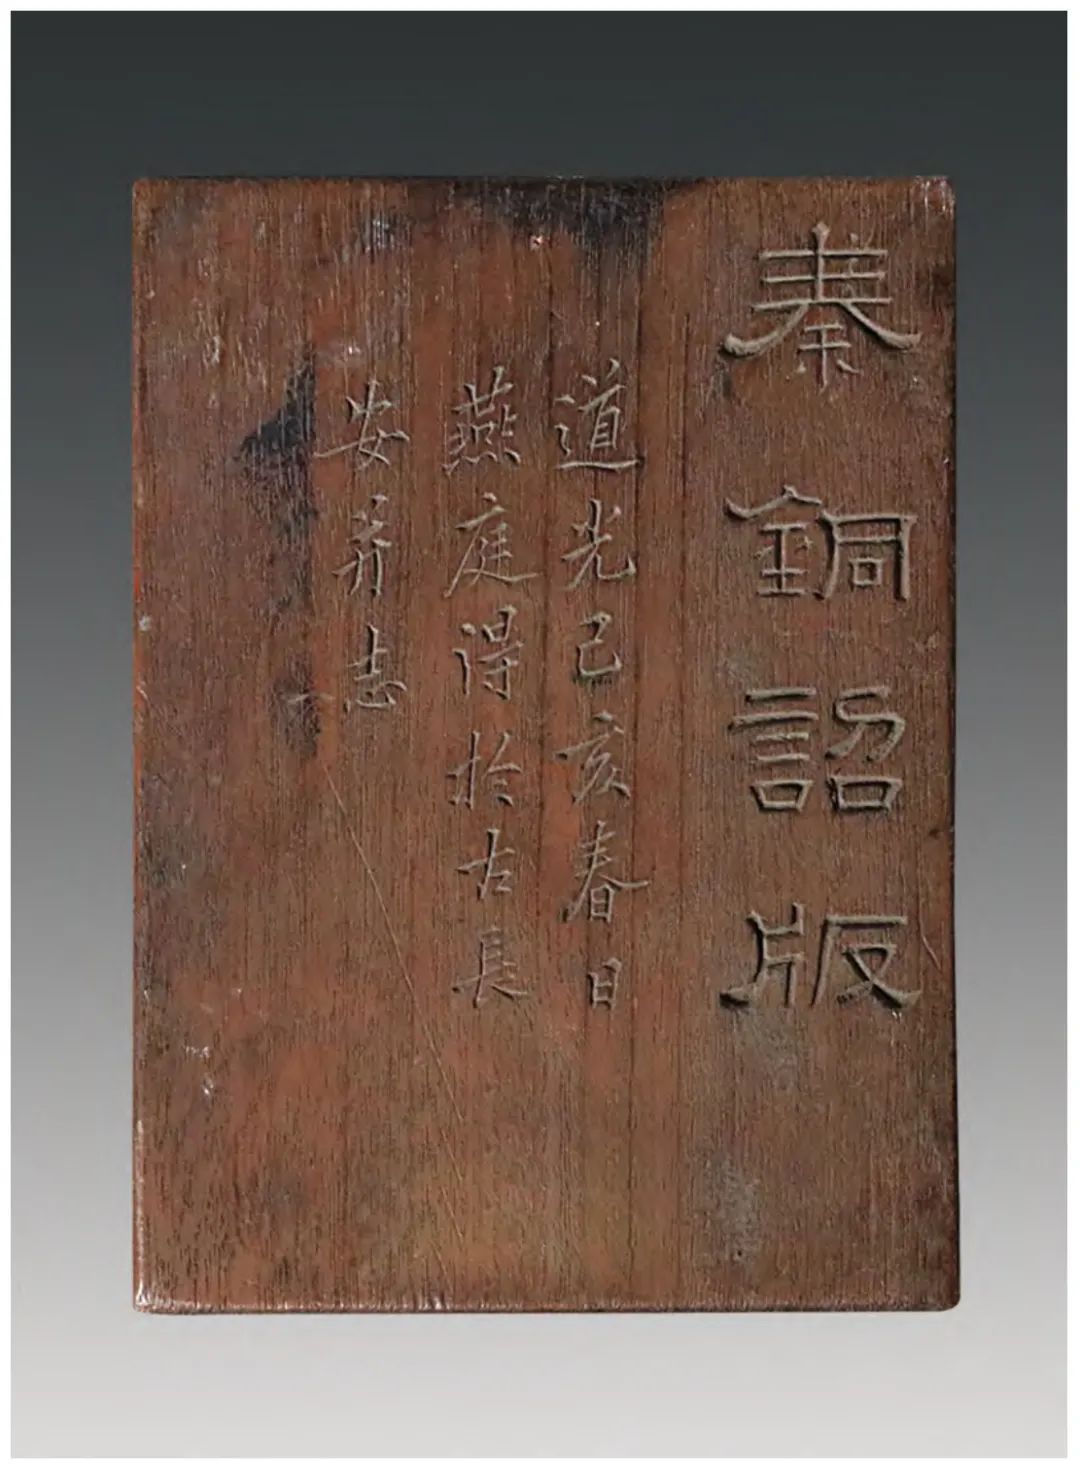 秦銅詔版
道光己亥春日
燕庭得於古長
安并志